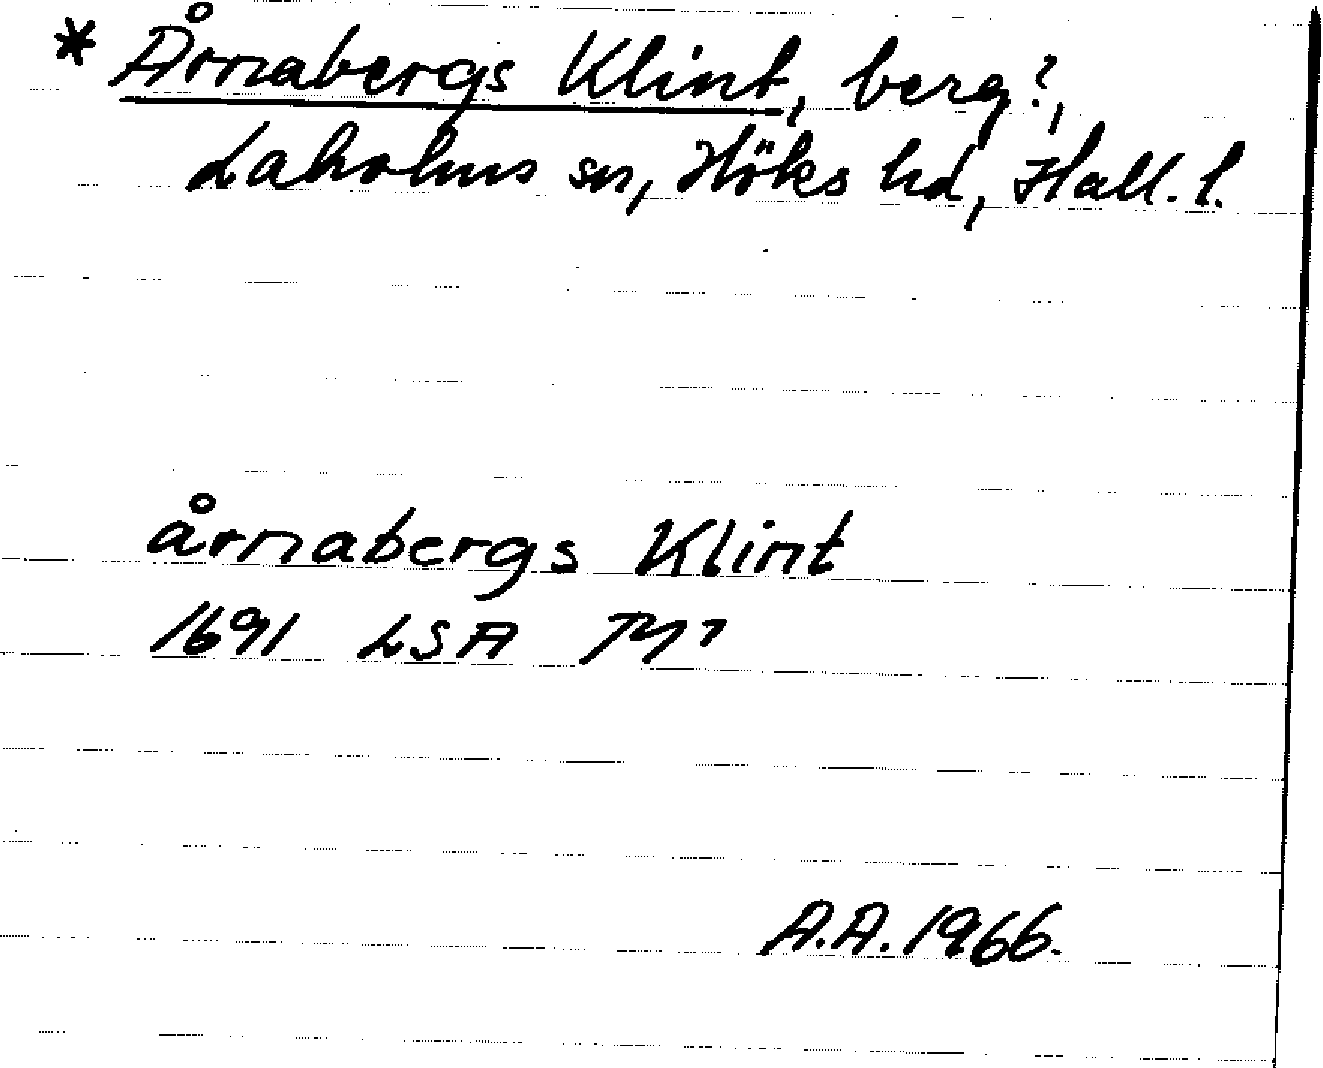 * Årnabergs Klint, berg?,
Laholms sn, Höks hd, Hall. l.
årnabergs Klint
1691 LSA
A.A. 1966.